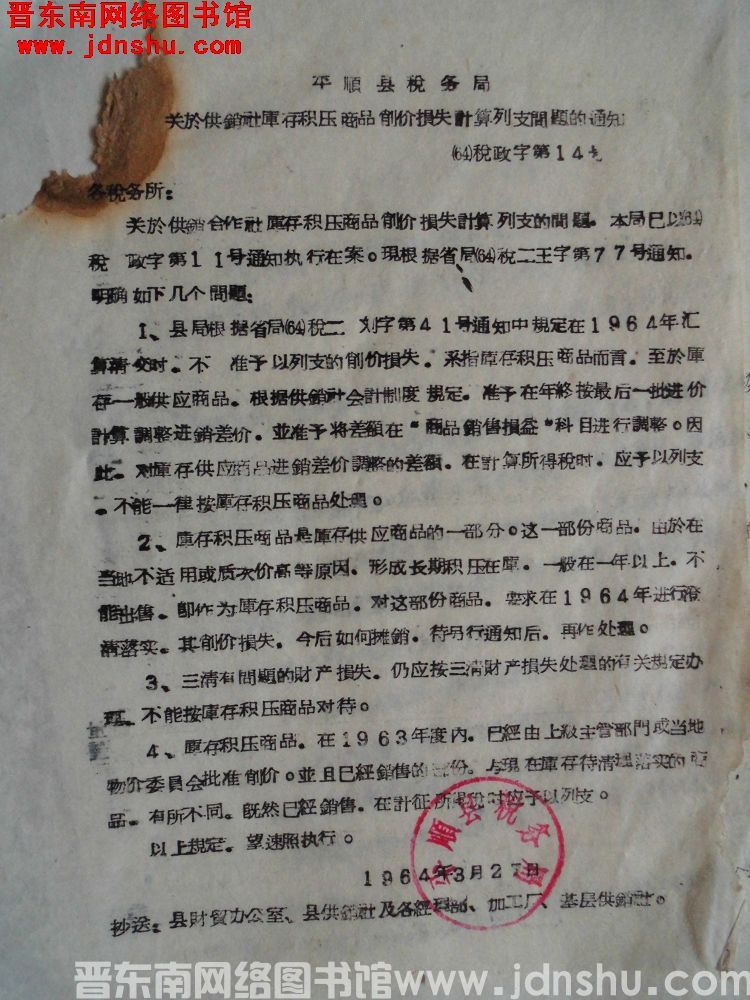 晋东南网络图书馆
www.jdnshu.com
平順县稅务局
关於供銷社庫存积压商品削价損失計算列支問題的通知
(64)稅政字第14号
各稅务所：
关於供銷合作社庫存积压商品削价損失計算列支的問題。本局已以(64)
稅 政字第11号通知执行在案。現根据省局(64)稅二王字第77号通知。
明确如下几个問題：
1、县局根据省局(64)稅二 刘字第41号通知中規定在1964年汇
算清交时。不 准予以列支的削价損失。系指庫存积压商品而言。至於庫
存一般供应商品。根据供銷社会計制度 規定。准予在年終按最后一批进价
計算調整进銷差价。並准予将差額在“商品銷售損益”科目进行調整。因
此。对庫存供应商品进銷差价調整的差額。在計算所得稅时。应予以列支
。不能一律按庫存积压商品处理。
2、庫存积压商品是庫存供应商品的一部分。这一部份商品。由於在
当地不适用或质次价高等原因。形成长期积压在庫。一般在一年以上。不
能出售。卽作为庫存积压商品。对这部份商品。要求在1964年进行澄
清落实。其削价損失。今后如何摊銷。待另行通知后。再作处理。
3、三清有問題的財产損失。仍应按三清財产損失处理的有关規定办
理。不能按庫存积压商品对待。
4、庫存积压商品。在1963年度內。已經由上級主管部門或当地
物价委員会批准削价。並且已經銷售的 份。与現在庫存待清理落实的
品。有所不同。既然已經銷售。在計征所得稅时应予以列支。
以上規定。望速照执行。
1964年3月27日
平順县稅务局
抄送：县財貿办公室、县供銷社及各經理部、加工厂、基层供銷社。
晋东南网络图书馆www.jdnshu.com